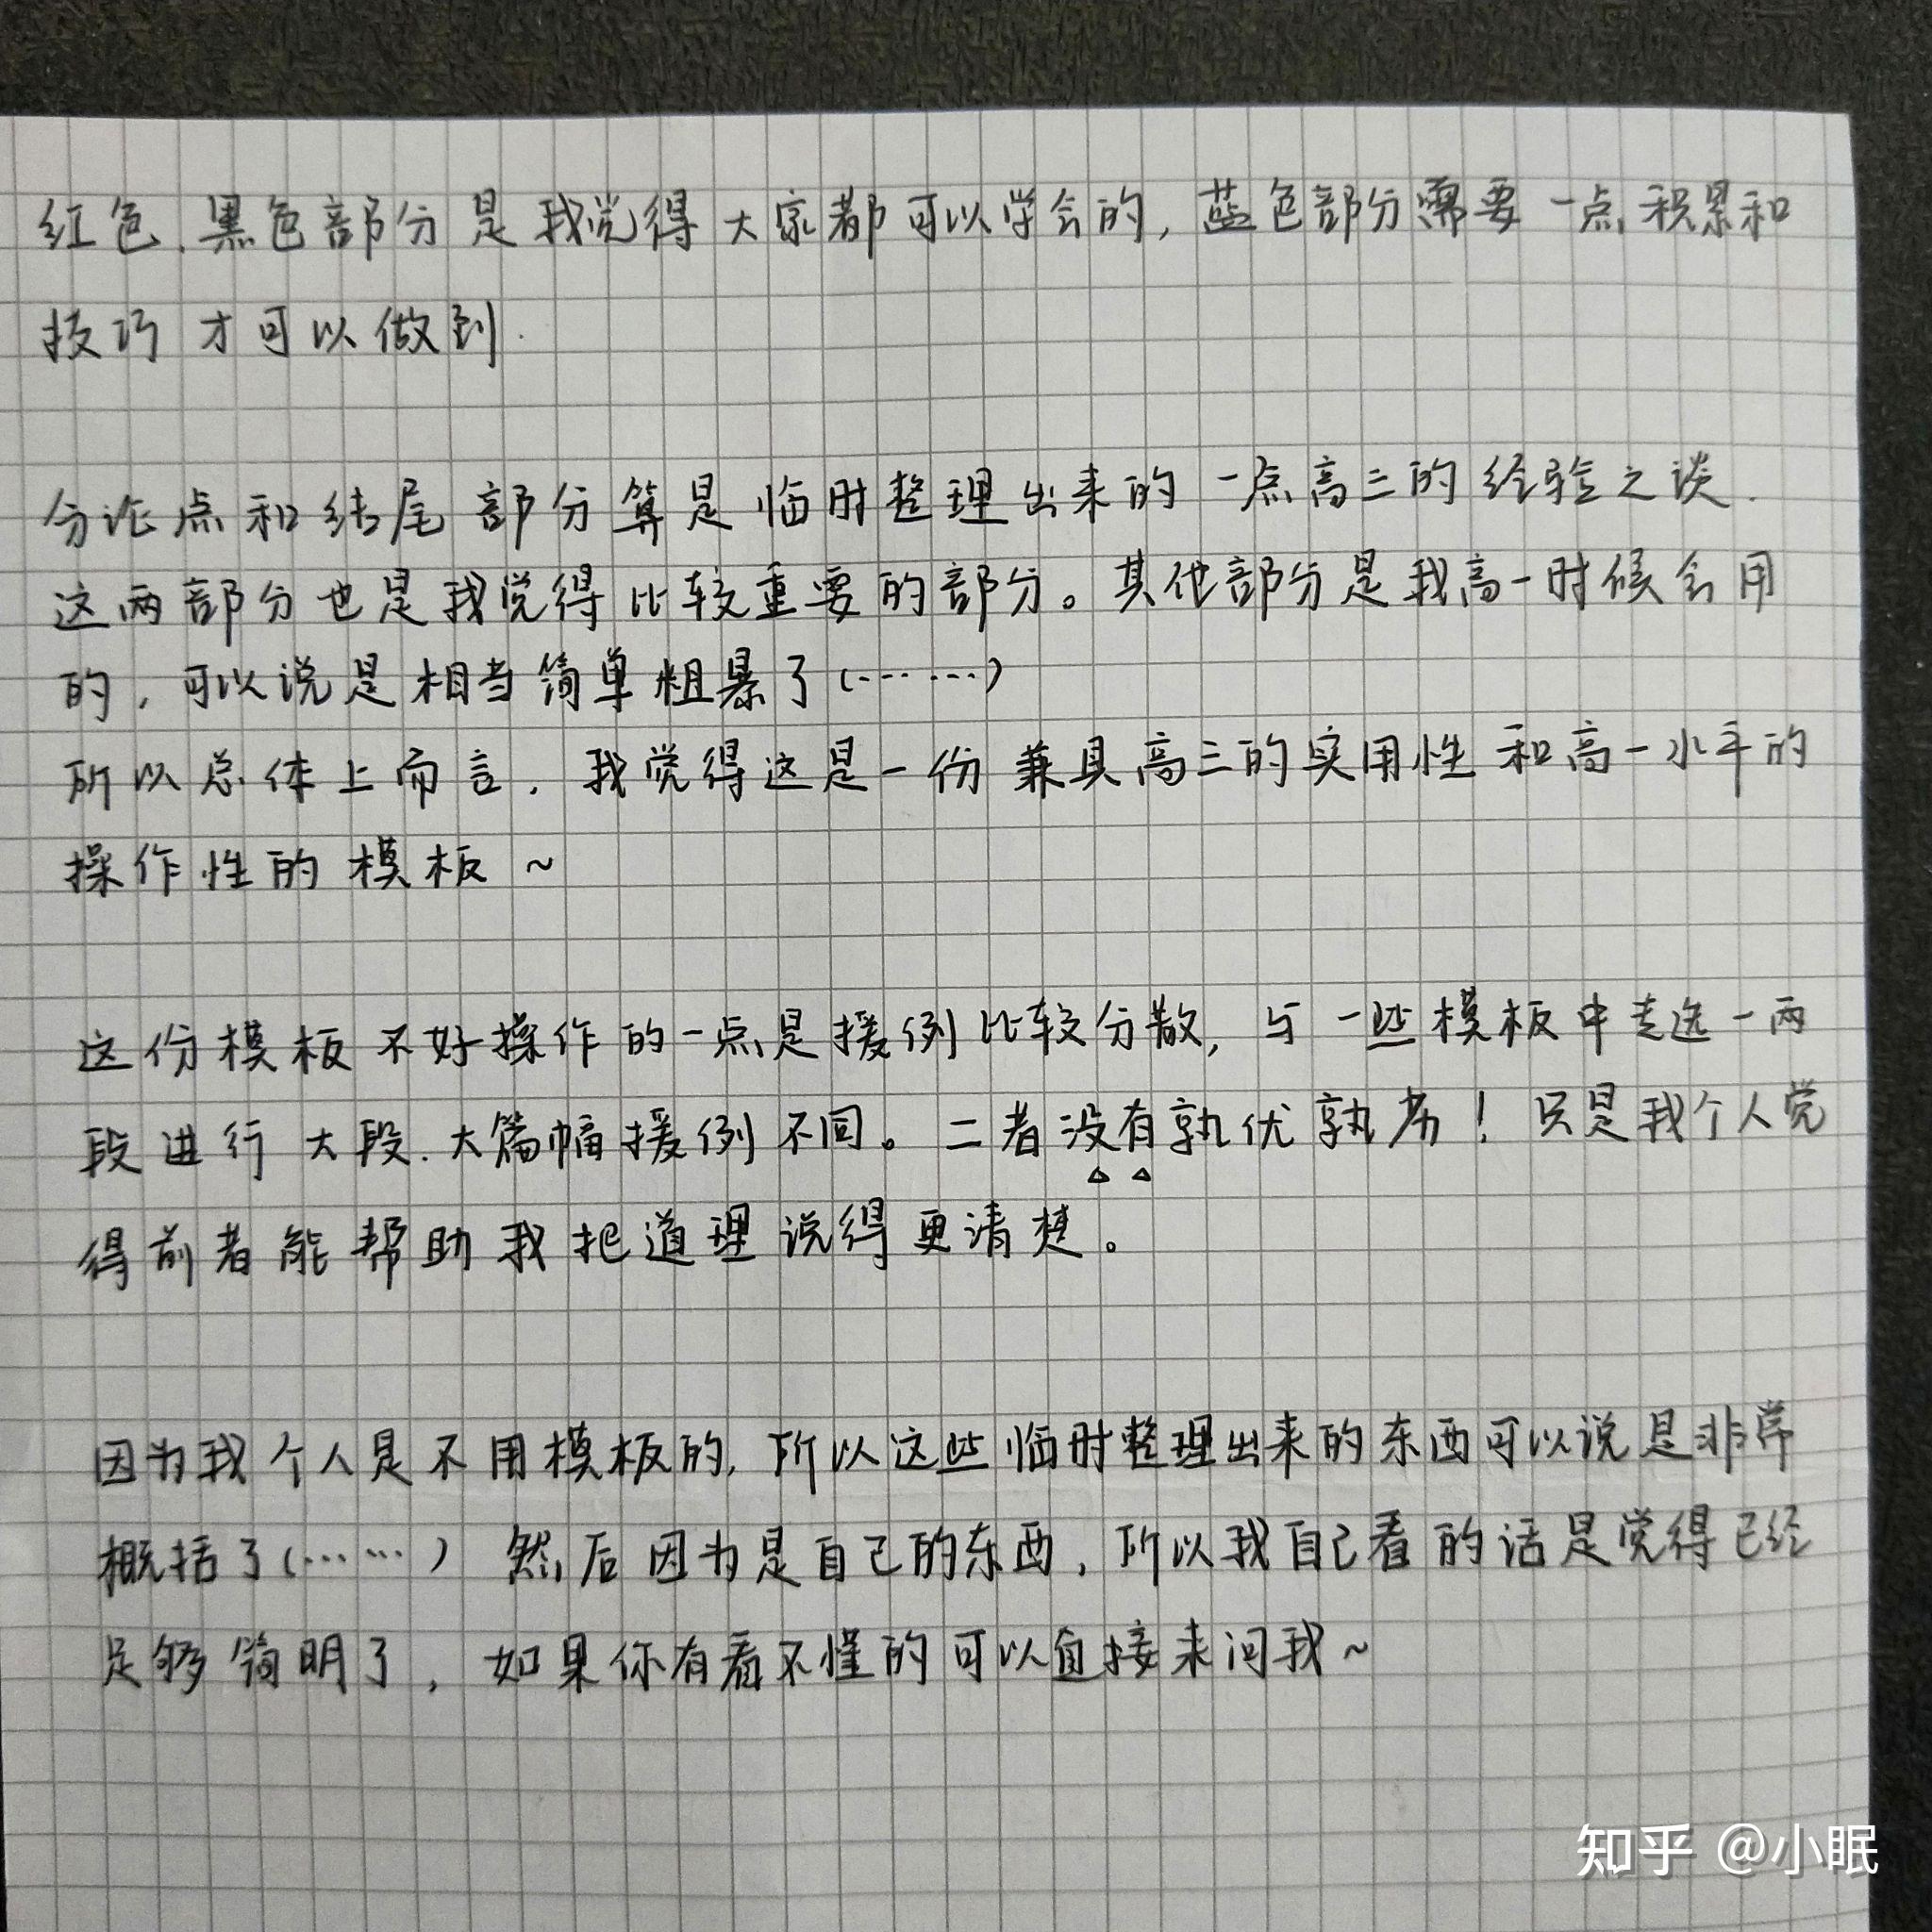 红色、黑色部分是我觉得大家都可以学会的，蓝色部分需要一点积累和
技巧才可以做到.
分论点和结尾部分算是临时整理出来的一点高三的经验之谈.
这两部分也是我觉得比较重要的部分。其他部分是我高一时候会用
的，可以说是相当简单粗暴了(……)
所以总体上而言，我觉得这是一份兼具高三的实用性和高一水平的
操作性的模板~
这份模板不好操作的一点是援例比较分散，与一些模板中专选一两
段进行大段、大篇幅援例不同。二者没有孰优孰劣！只是我个人觉
得前者能帮助我把道理说得更清楚。
因为我个人是不用模板的，所以这些临时整理出来的东西可以说是非常
概括了(……) 然后因为是自己的东西，所以我自己看的话是觉得已经
足够简明了，如果你有看不懂的可以直接来问我~
知乎 @小眠